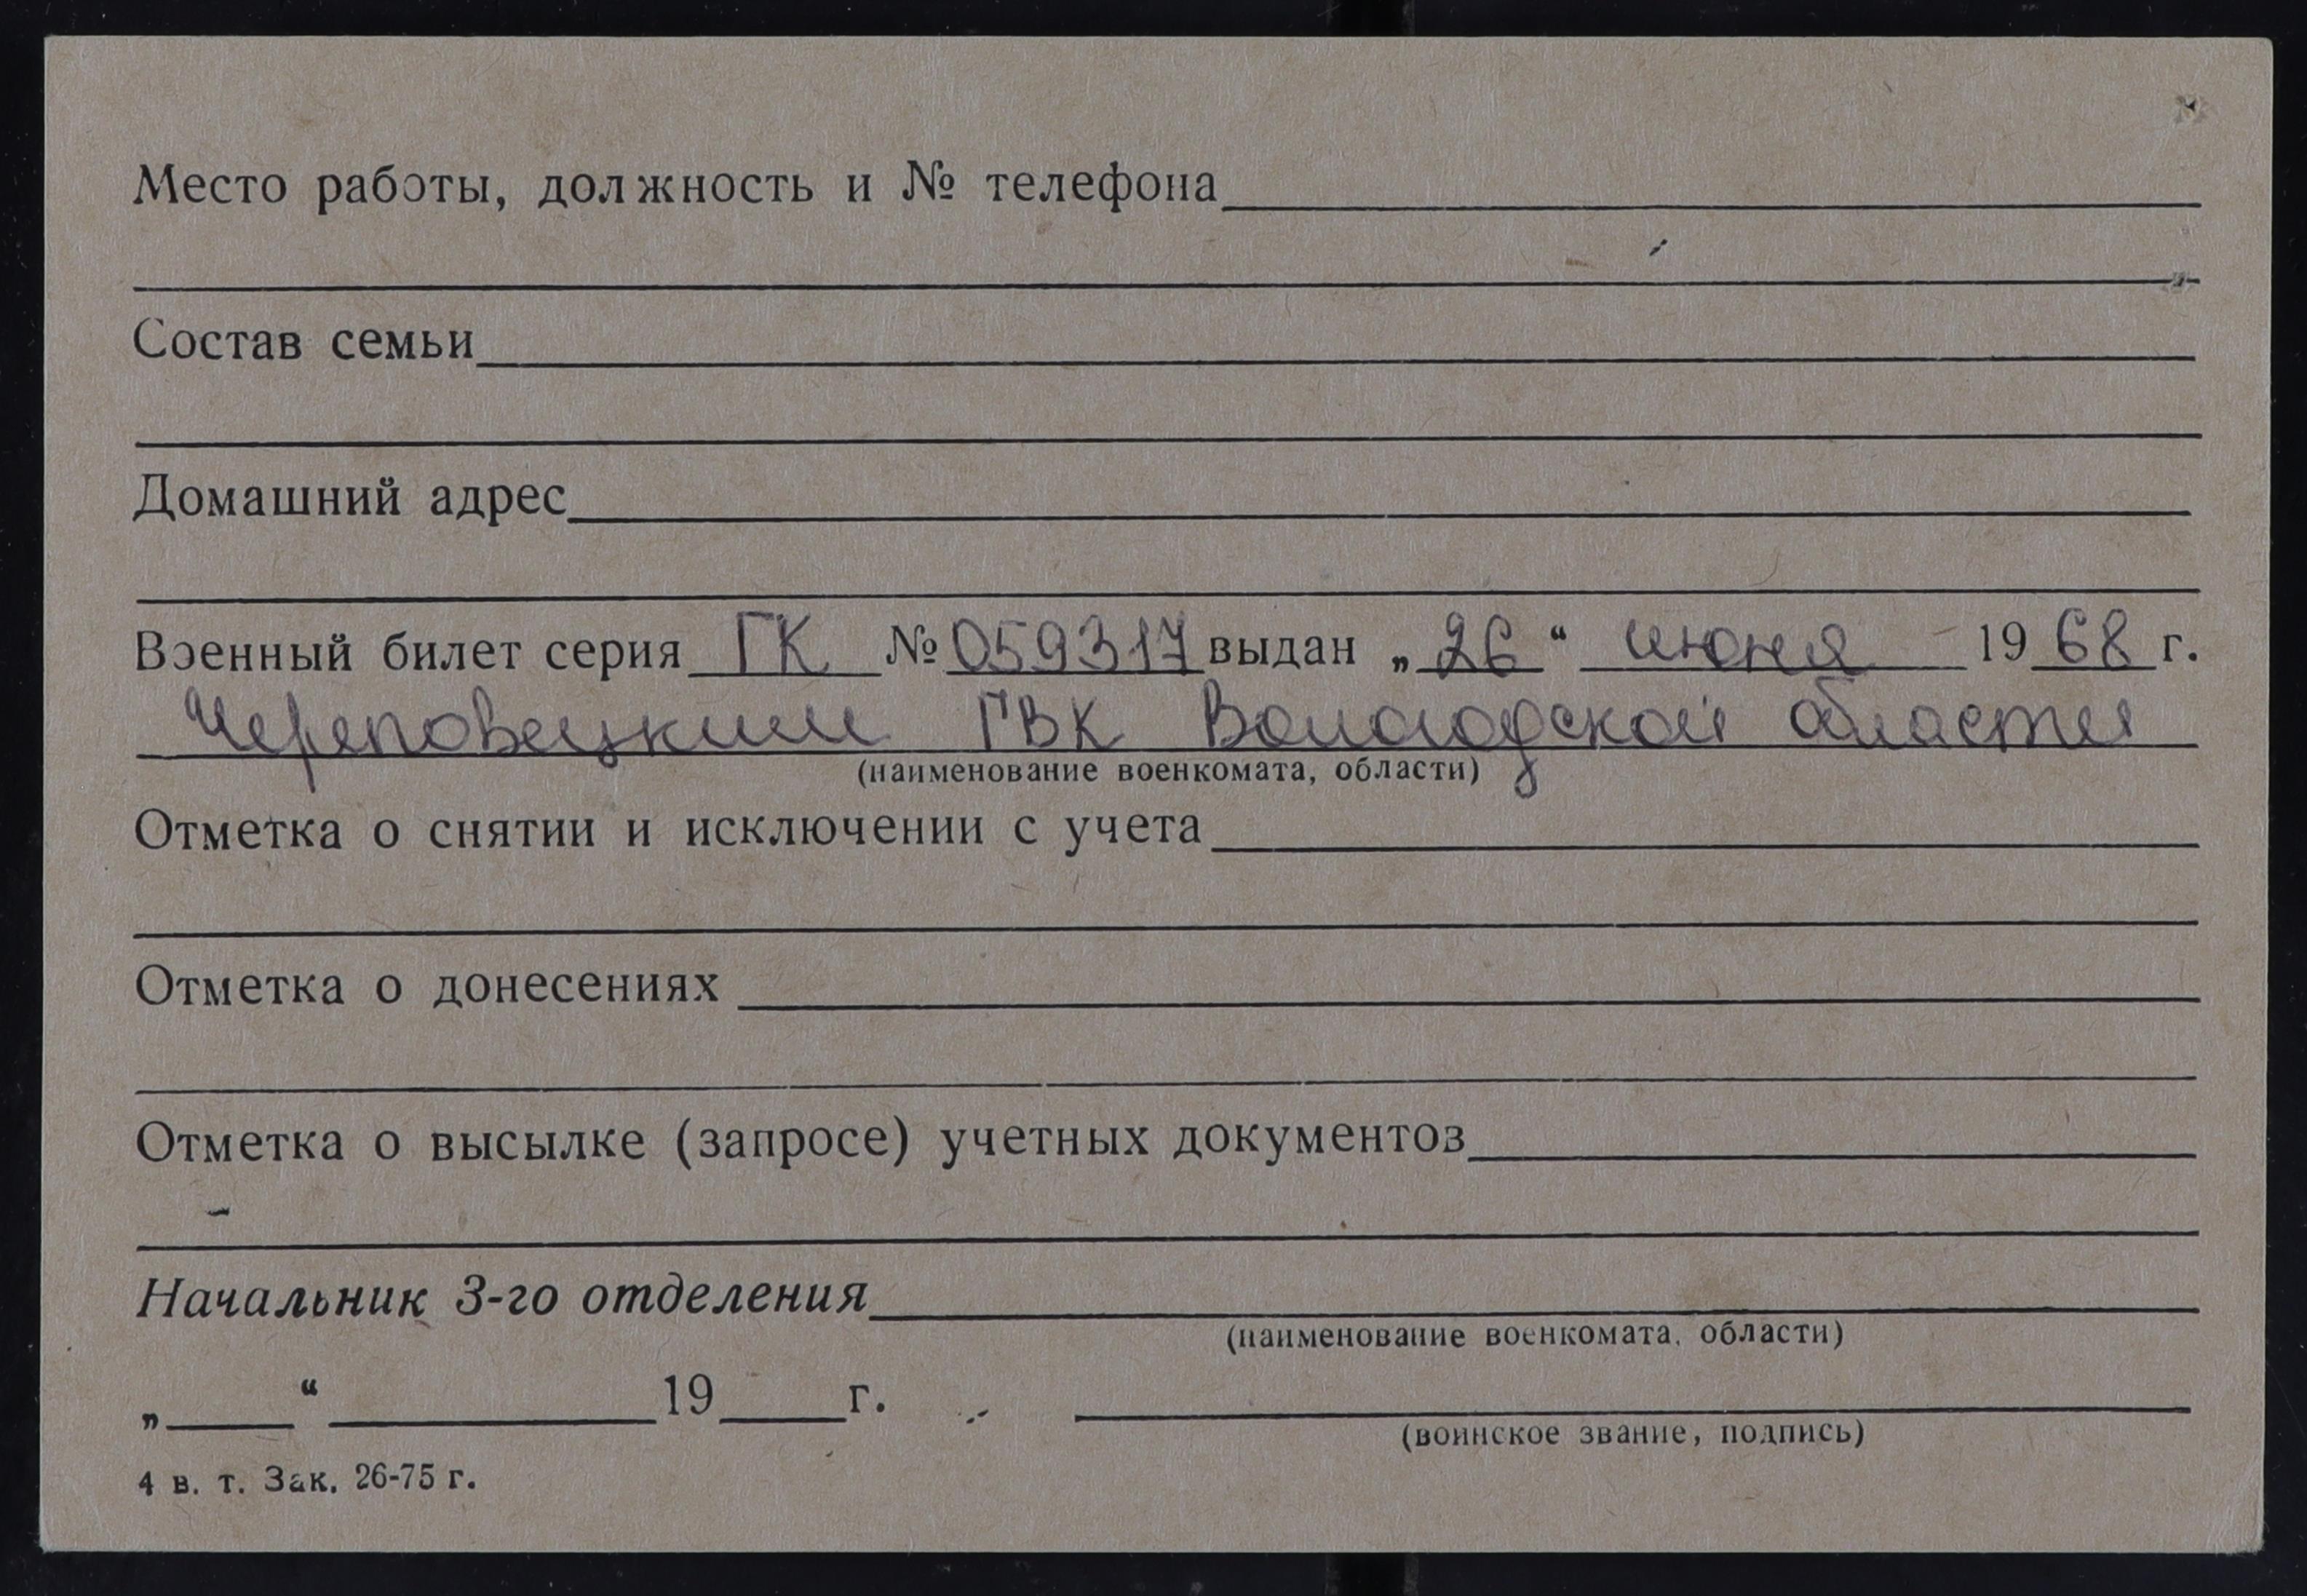 Место работы, должность и № телефона
Состав семьи
Домашний адрес
Военный билет серия ГК № 059317 выдан „26“ июня 1968 г.
Череповецким ГВК Вологодской области
(наименование военкомата, области)
Отметка о снятии и исключении с учета
Отметка о донесениях
Отметка о высылке (запросе) учетных документов
Начальник 3-го отделения
(наименование военкомата, области)
„ “ 19 г.
(воинское звание, подпись)
4 в. т. Зак. 26-75 г.